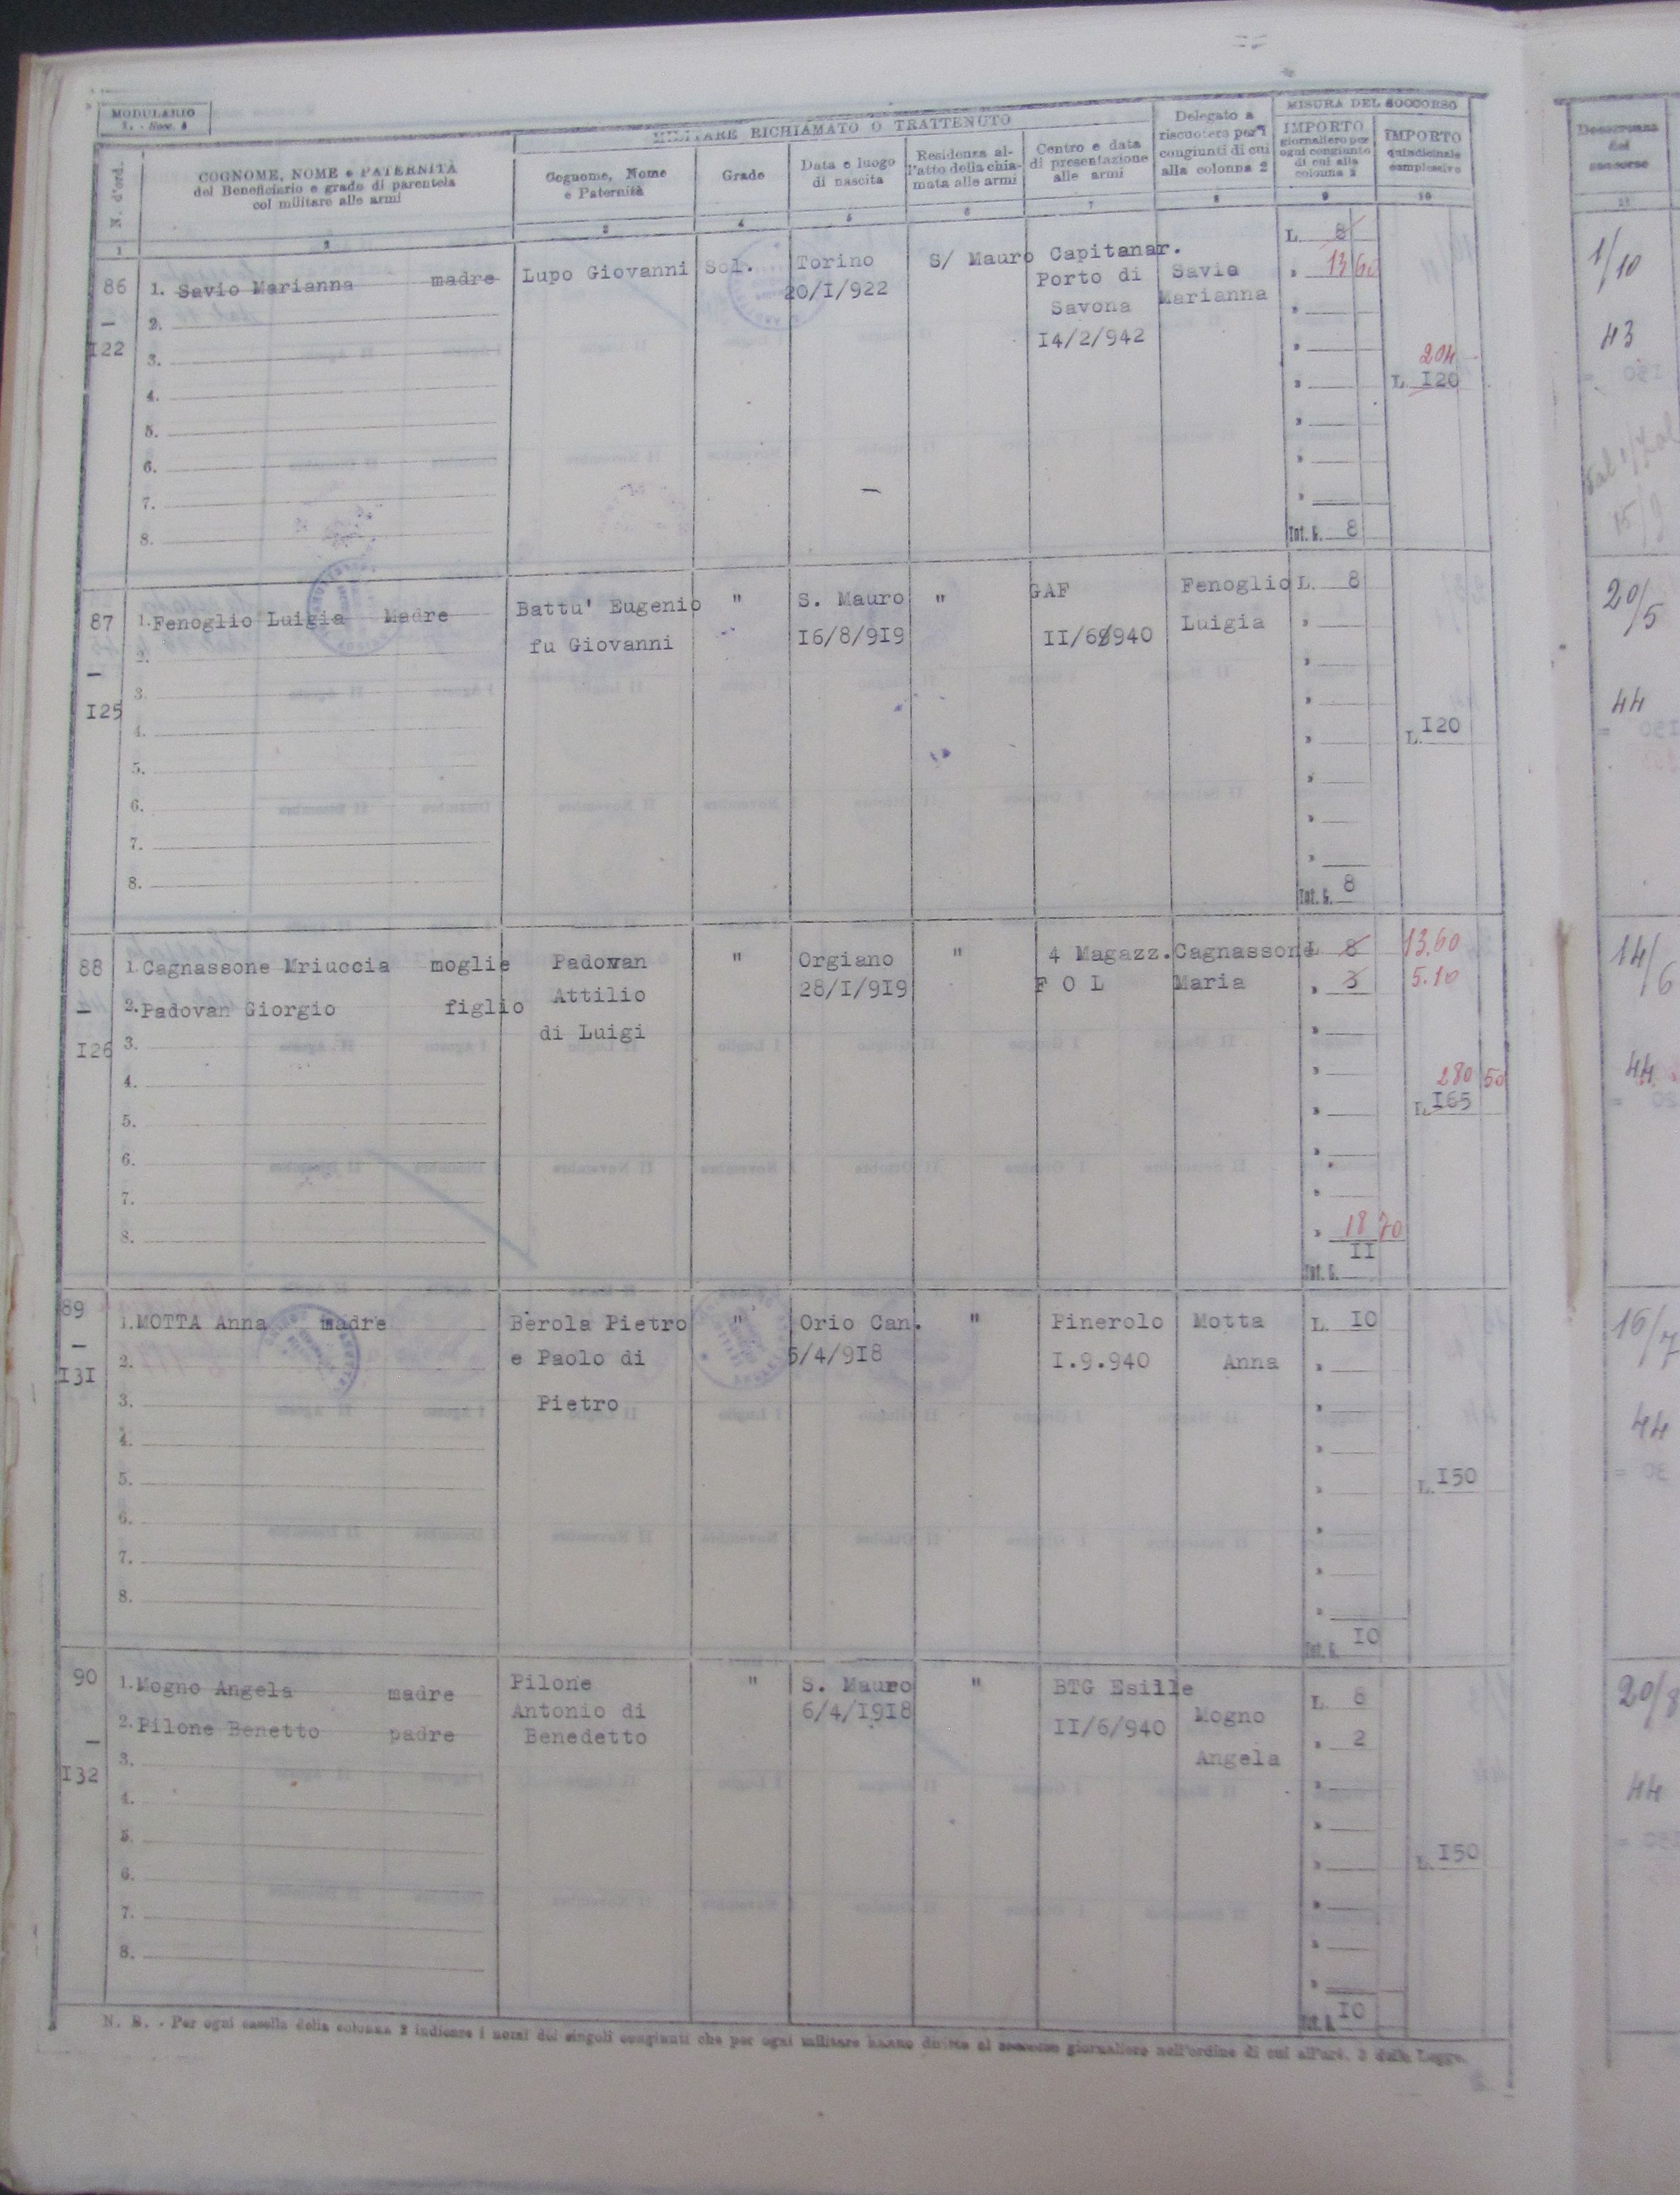 MODULARIO
MILITARE RICHIAMATO O TRATTENUTO
MISURA DEL SOCCORSO
N. d'ord.
COGNOME, NOME e PATERNITÀ
del Beneficiario e grado di parentela
col militare alle armi
Cognome, Nome
e Paternità
Grado
Data e luogo
di nascita
Residenza al-
l'atto della chia-
mata alle armi
Centro e data
di presentazione
alle armi
Delegato a
riscuotere per i
congiunti di cui
alla colonna 2
IMPORTO
giornaliero per
ogni congiunto
di cui alla
colonna 2
IMPORTO
quindicinale
complessivo
1 2 3 4 5 6 7 8 9 10
86
–
I22
1. Savio Marianna madre
2.
3.
4.
5.
6.
7.
8.
Lupo Giovanni
Sol.
Torino
20/I/922
S/ Mauro
Capitanar.
Porto di
Savona
I4/2/942
Savio
Marianna
L. 8
13 60
204
L. I20
Tot. G. 8
1/10
43
87
–
I25
1. Fenoglio Luigia Madre
2.
3.
4.
5.
6.
7.
8.
Battu' Eugenio
fu Giovanni
"
S. Mauro
I6/8/9I9
"
GAF
II/6/940
Fenoglio
Luigia
L. 8
L. I20
Tot. G. 8
20/5
44
88
–
I26
1. Cagnassone Mriuccia moglie
2. Padovan Giorgio figlio
3.
4.
5.
6.
7.
8.
Padovan
Attilio
di Luigi
"
Orgiano
28/I/9I9
"
4 Magazz.
F O L
Cagnassone
Maria
L. 8 13,60
3 5.10
280 50
L. I65
18 70
II
Tot. G.
14/6
44
89
–
I3I
1. MOTTA Anna madre
2.
3.
4.
5.
6.
7.
8.
Berola Pietro
e Paolo di
Pietro
"
Orio Can.
5/4/9I8
"
Pinerolo
I.9.940
Motta
Anna
L. IO
L. I50
Tot. G. IO
16/7
44
90
–
I32
1. Mogno Angela madre
2. Pilone Benetto padre
3.
4.
5.
6.
7.
8.
Pilone
Antonio di
Benedetto
"
S. Mauro
6/4/I9I8
"
BTG Esille
II/6/940
Mogno
Angela
L. 8
2
L. I50
Tot. G. IO
20/8
44
N. B. - Per ogni casella della colonna 2 indicare i nomi dei singoli congiunti che per ogni militare hanno diritto al soccorso giornaliero nell'ordine di cui all'art. 3 della Legge.